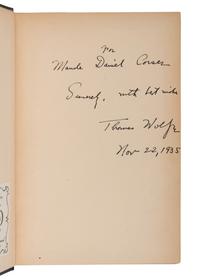 For
Maude Daniel Corser
Sincerely, with best wishes
Thomas Wolfe
Nov 22, 1935